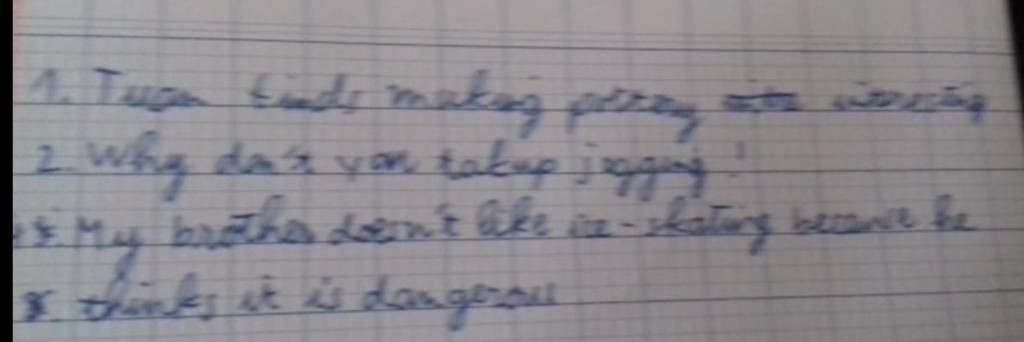 1. Tuan finds making pottery interesting
2. Why don't you takup jogging?
3. My brother doesn't like ice-skating because he
thinks it is dangerous